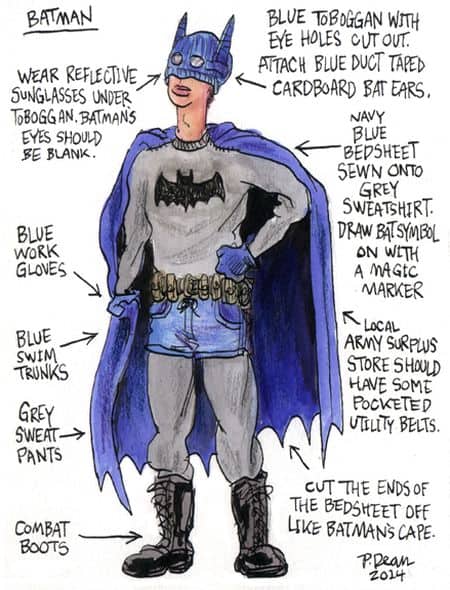 BATMAN
BLUE TOBOGGAN WITH
EYE HOLES CUT OUT.
ATTACH BLUE DUCT TAPED
CARDBOARD BAT EARS.
WEAR REFLECTIVE
SUNGLASSES UNDER
TOBOGGAN. BATMAN'S
EYES SHOULD
BE BLANK.
NAVY
BLUE
BEDSHEET
SEWN ONTO
GREY
SWEATSHIRT.
DRAW BATSYMBOL
ON WITH
A MAGIC
MARKER
BLUE
WORK
GLOVES
BLUE
SWIM
TRUNKS
LOCAL
ARMY SURPLUS
STORE SHOULD
HAVE SOME
POCKETED
UTILITY BELTS.
GREY
SWEAT
PANTS
CUT THE ENDS OF
THE BEDSHEET OFF
LIKE BATMAN'S CAPE.
COMBAT
BOOTS
P. Dean
2014